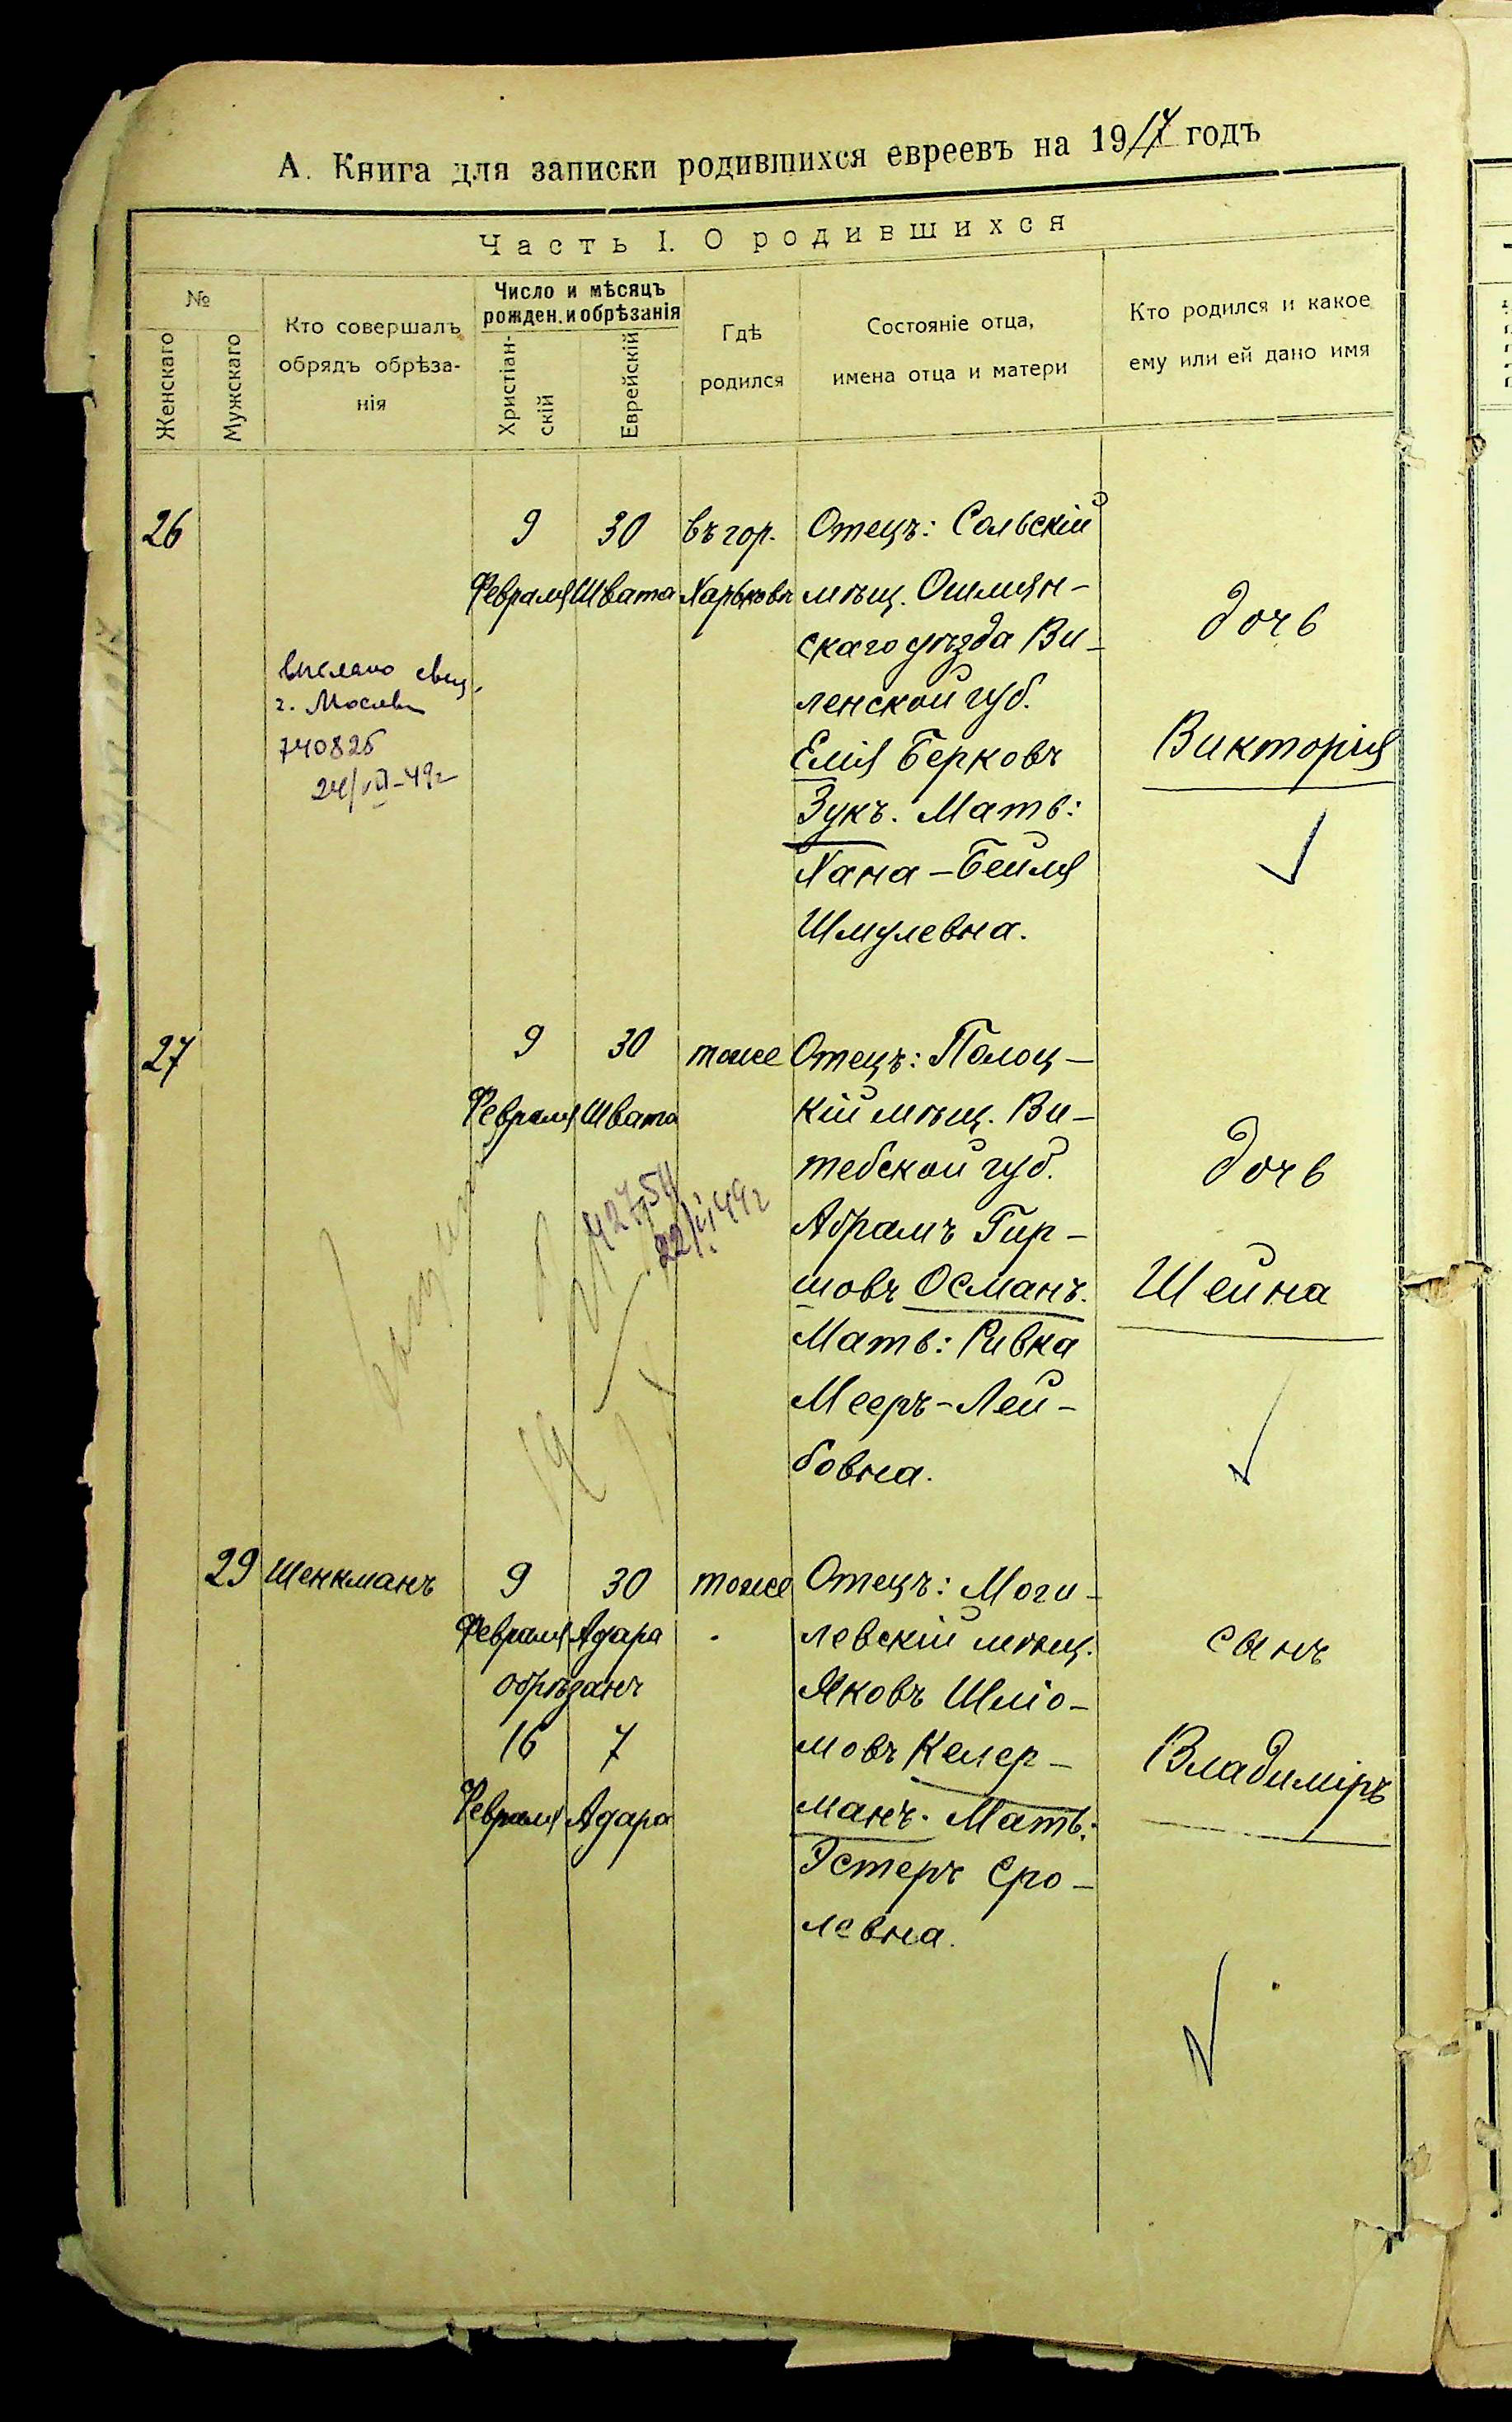 А. Книга для записки родившихся евреевъ на 1917 годъ
Часть I. О родившихся
№
Женскаго
Мужскаго
Кто совершалъ
обрядъ обрѣза-
нія
Число и мѣсяцъ
рожден. и обрѣзанія
Христіан-
скій
Еврейскій
Гдѣ
родился
Состояніе отца,
имена отца и матери
Кто родился и какое
ему или ей дано имя
26
выслано свид.
г. Москвы
740825
24/VII-49г
9
Февраля
30
Швата
въ гор.
Харьковѣ
Отецъ: Сольскій
мѣщ. Ошмян-
скаго уѣзда Ви-
ленской губ.
Елія Берковъ
Зукъ. Мать:
Хана-Бейля
Шмулевна.
дочь
Викторія
27
9
Февраля
30
Швата
тоже
Отецъ: Полоц-
кій мѣщ. Ви-
тебской губ.
Абрамъ Гир-
шовъ Османъ.
Мать: Ривка
Мееръ-Лей-
бовна.
дочь
Шейна
29
Шенкманъ
9
Февраля
30
Адара
обрѣзанъ
16
Февраля
7
Адара
тоже
Отецъ: Моги-
левскій мѣщ.
Яковъ Шліо-
мовъ Келер-
манъ. Мать:
Эстеръ Сро-
левна.
сынъ
Владиміръ